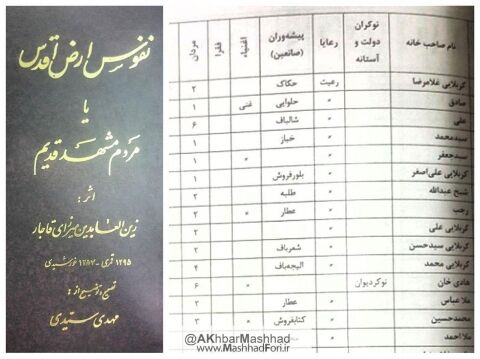 نفوس ارض اقدس
یا
مردم مشهد قدیم
اثر:
زین العابدین میرزای قاجار
۱۲۹۵ قمری - ۱۲۵۷ خورشیدی
تصحیح و توضیح از:
مهدی سیدی
نام صاحب خانه | نوکران دولت و آستانه | رعایا | پیشه‌وران (صانعین) | اغنیاء | فقرا | مردان
کربلایی غلامرضا | رعیت | حکاک | ۲
صادق | " | حلوایی | غنی | ۱
علی | " | شالباف | ۶
سیدمحمد | " | خباز | ۱
سیدجعفر | " | " | ۱
کربلایی علی‌اصغر | " | بلورفروش | ۱
شیخ عبدالله | " | طلبه | ۲
رجب | " | عطار | " | ۲
کربلایی علی | " | " | ۲
کربلایی سیدحسن | " | شعرباف | ۲
کربلایی محمد | " | الیجه‌باف | ۴
هادی خان | نوکر دیوان | " | ۶
ملا عباس | " | عطار | ۲
محمدحسین | " | کتابفروش | " | ۳
ملا احمد | "
@AKhbarMashhad
www.MashhadFori.ir